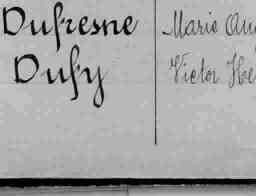 Dufresne Marie Aug
Dufy Victor He